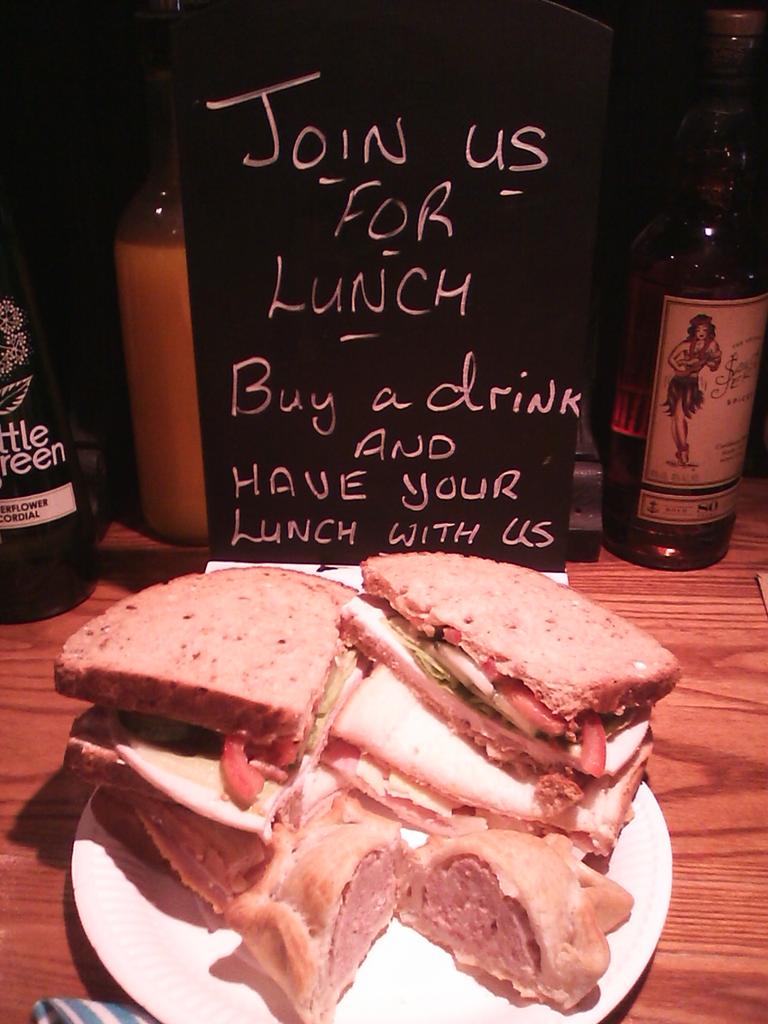 JOIN US
FOR
LUNCH
Buy a drink
AND
HAVE YOUR
LUNCH WITH US
ttle
reen
ERFLOWER
CORDIAL